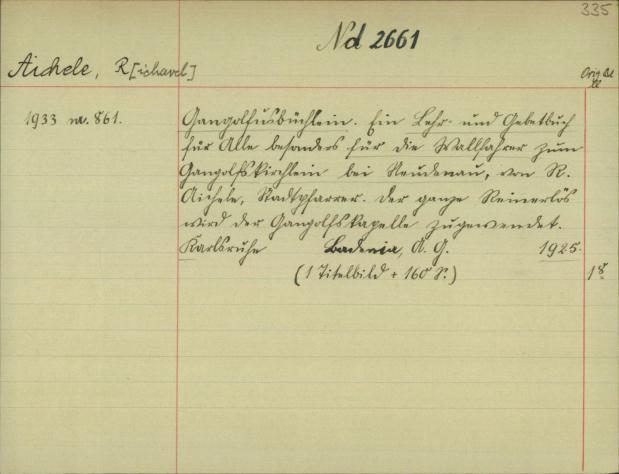 335
Nd 2661
Aichele, R[ichard]
Orig. Bd.
1933 nr. 861.
Gangolfusbüchlein. Ein Lehr- und Gebetbuch
für Alle besonders für die Wallfahrer zum
Gangolfskirchlein bei Neudenau, von R.
Aichele, Stadtpfarrer. Der ganze Reinerlös
wird der Gangolfskapelle zugewendet.
Karlsruhe Badenia, A. G. 1925.
(1 Titelbild + 160 S.)
18